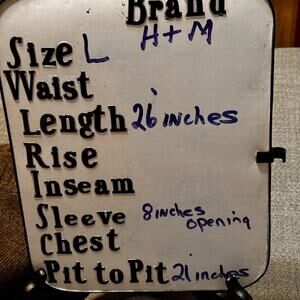 Brand
H+M
Size L
Waist
Length 26 inches
Rise
Inseam
Sleeve 8 inches opening
Chest
Pit to Pit 21 inches